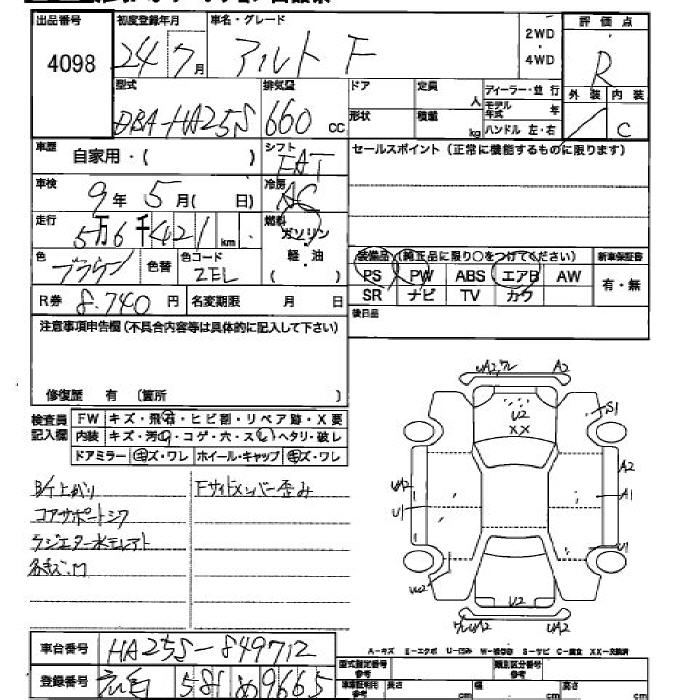 出品番号
4098
初度登録年月
24 7月
車名・グレード
アルト F
2WD
・
4WD
評価点
R
外装 内装
C
型式
DBA-HA25S
排気量
660 cc
ドア
定員
人
形状
積載
kg
ディーラー・並行
モデル年式 年
ハンドル 左・右
車歴
自家用・( )
シフト
FAT
セールスポイント(正常に機能するものに限ります)
車検
9年 5月( 日)
冷房
AC
走行
5万6千421 km
燃料
ガソリン
軽・油
( )
色
ブラウン
色替
色コード
ZEL
装備品 (純正品に限り○をつけてください)
新車保証書
PS PW ABS エアB AW
SR ナビ TV カワ
有・無
R券 8.740円
名変期限 月 日
後日品
注意事項申告欄(不具合内容等は具体的に記入して下さい)
修復歴 有 (箇所 )
検査員記入欄
FW キズ・飛石・ヒビ割・リペア跡・X要
内装 キズ・汚れ・コゲ・穴・スレ・ヘタリ・破レ
ドアミラー キズ・ワレ ホイール・キャップ キズ・ワレ
B/T上がり
Fサイドメンバー歪み
コアサポートシワ
ラジエター水モレアト
各キズ.M
UA2,ワレ A2
U2
XX
S1
A2
UA2
A1
U1
U1
U2
UA2
車台番号 HA25S-849712
登録番号 581 め9665
A-キズ E-エクボ U-凹み W-補修跡 S-サビ C-腐食 XX-交換済
型式指定番号参考
類別区分番号参考
長さ cm 幅 cm 高さ cm